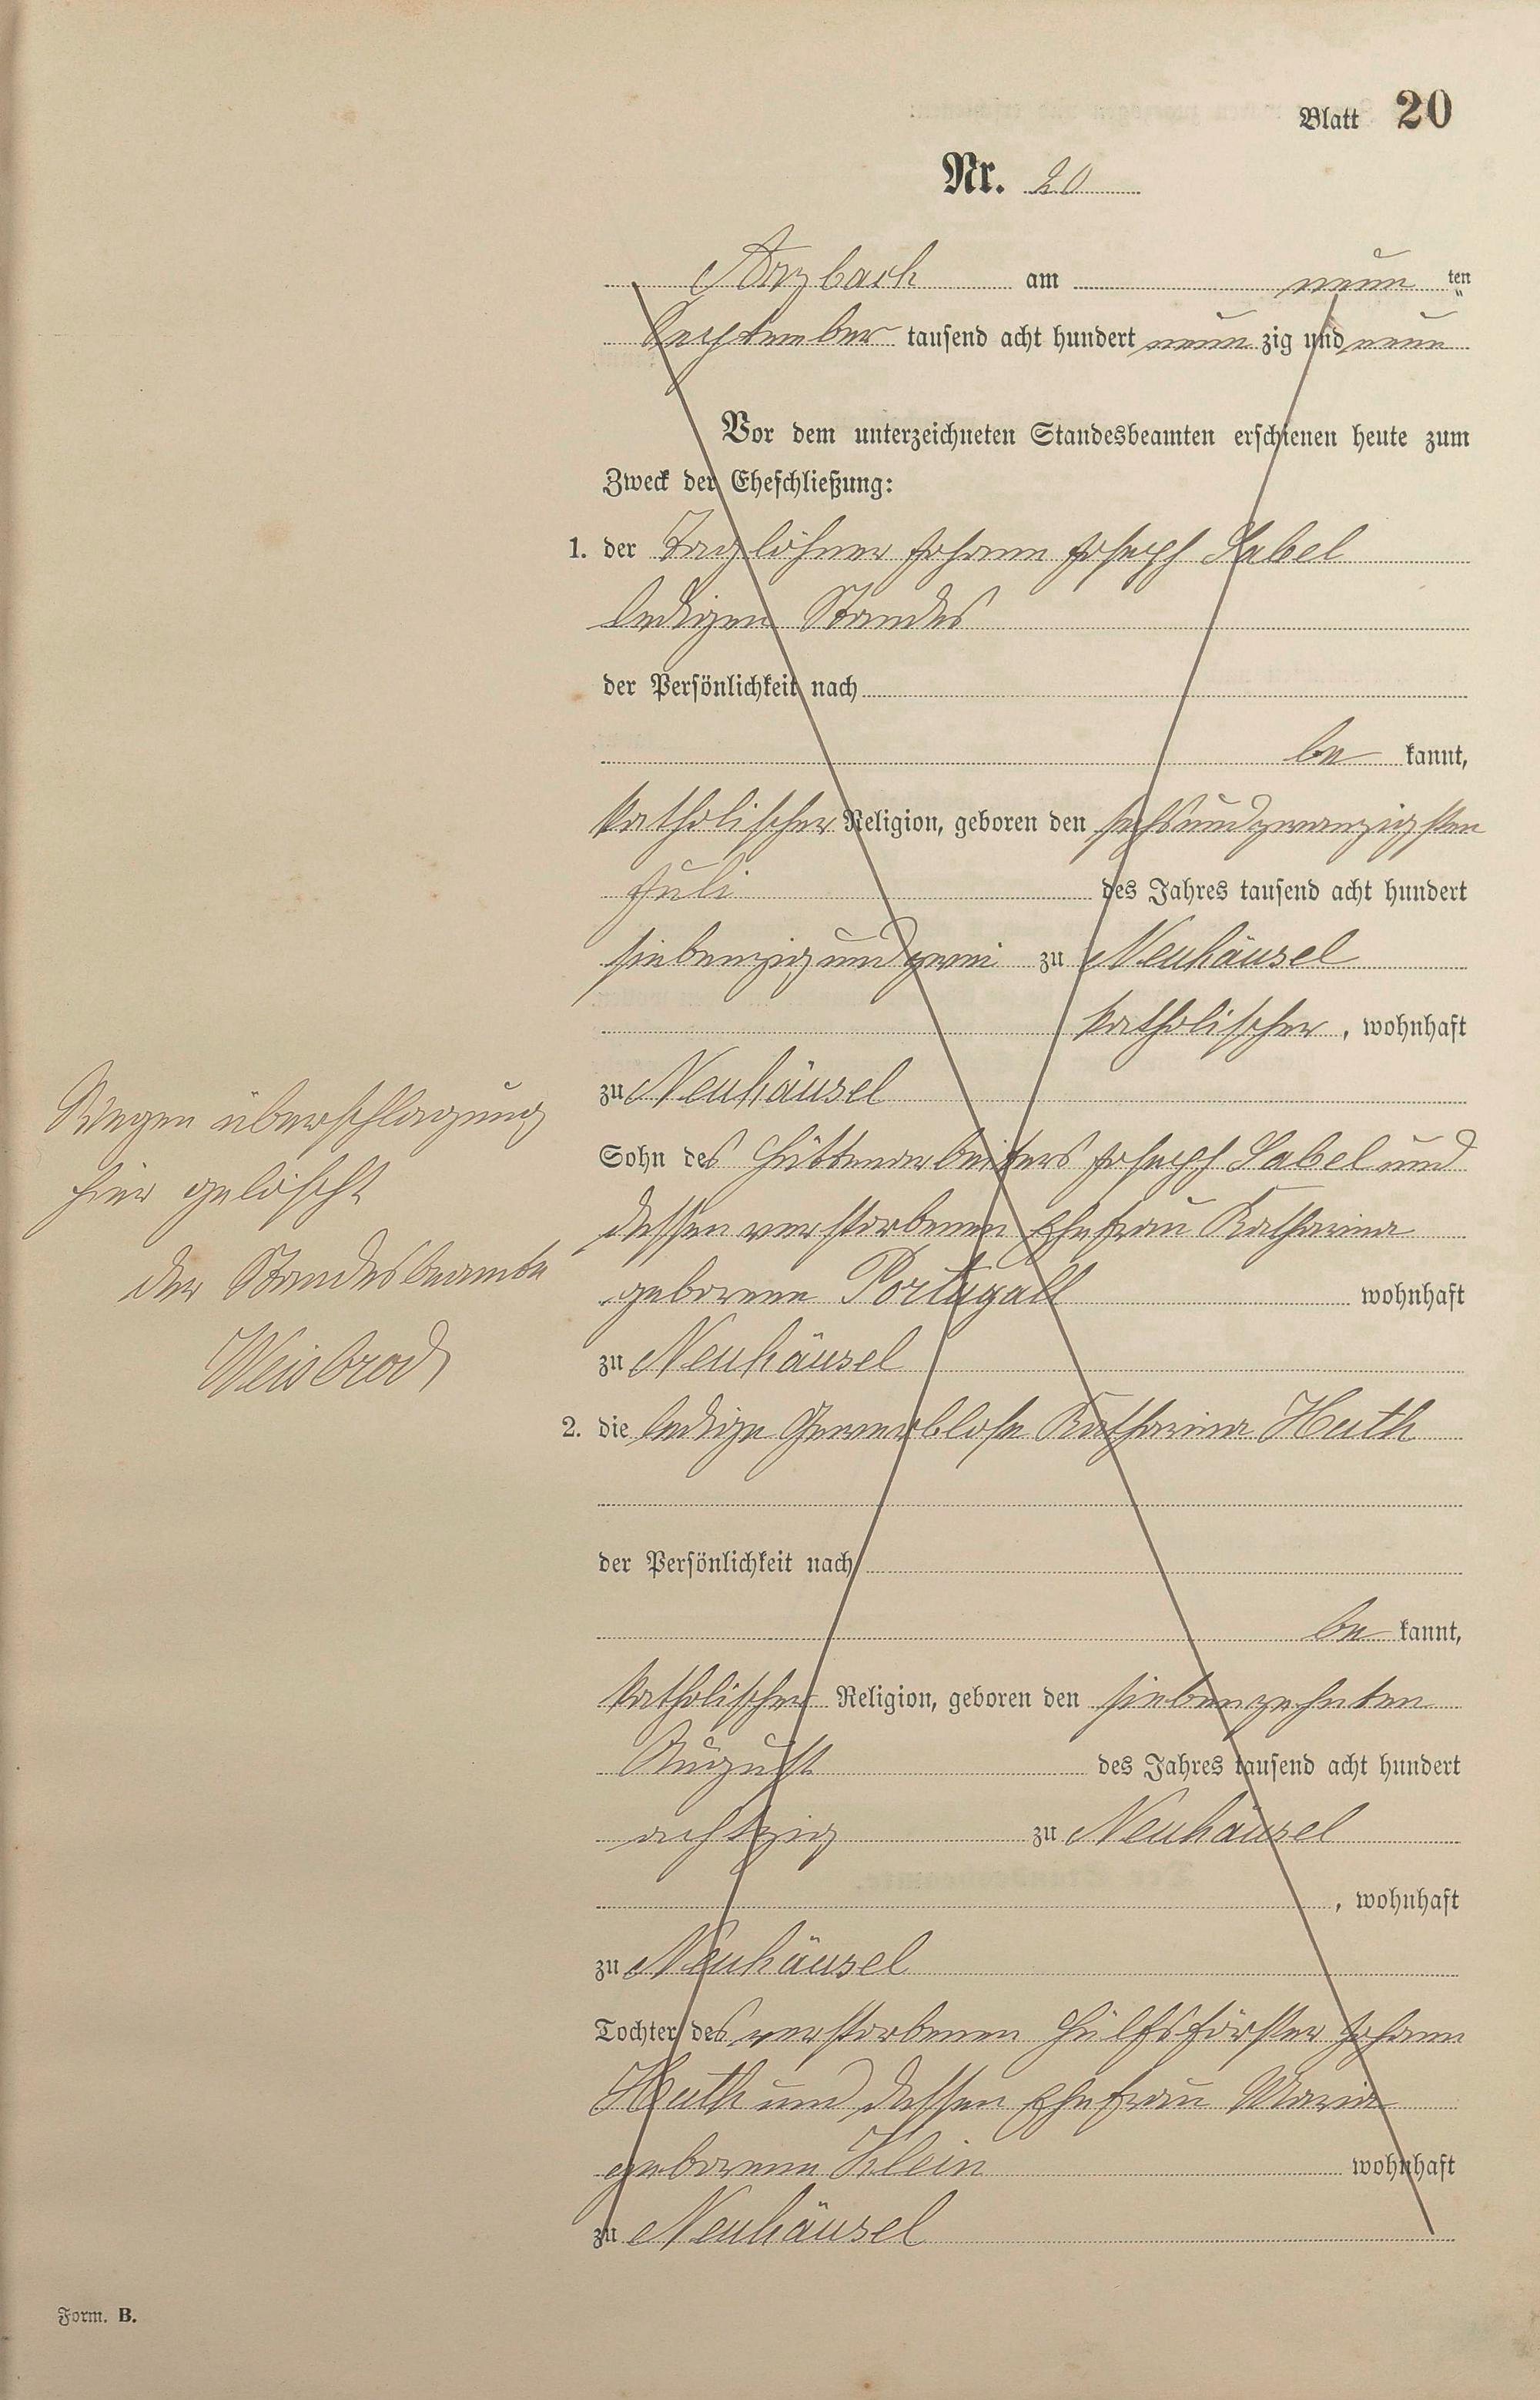 Blatt 20
Nr. 20
Arzbach am neun ten
September tausend acht hundert neun zig und neun
Vor dem unterzeichneten Standesbeamten erschienen heute zum
Zweck der Eheschließung:
1. der Taglöhner Johann Joseph Sabel
ledigen Standes
der Persönlichkeit nach
be kannt,
katholischer Religion, geboren den sechsundzwanzigsten
Juli des Jahres tausend acht hundert
siebenzig und zwei zu Neuhäusel
katholischer, wohnhaft
zu Neuhäusel
Sohn des Hüttenarbeiters Joseph Sabel und
dessen verstorbenen Ehefrau Katharina
geborene Portugall wohnhaft
zu Neuhäusel
2. die ledige Gewerblose Katharina Huth
der Persönlichkeit nach
be kannt,
katholischer Religion, geboren den siebenzehnten
August des Jahres tausend acht hundert
achtzig zu Neuhäusel
, wohnhaft
zu Neuhäusel
Tochter des verstorbenen Hülfsförster Johann
Huth und dessen Ehefrau Maria
geborene Klein wohnhaft
zu Neuhäusel
Wegen überschlagung
hier gelöscht
der Standesbeamte
Weisbrod
Form. B.